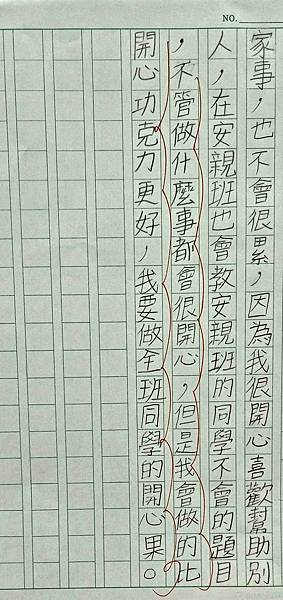 NO.
家事，也不會很累，因為我很開心喜歡幫助別
人，在安親班也會教安親班的同學不會的題目
，不管做什麼事都會很開心，但是我會做的比
開心功克力更好，我要做全班同學的開心果。